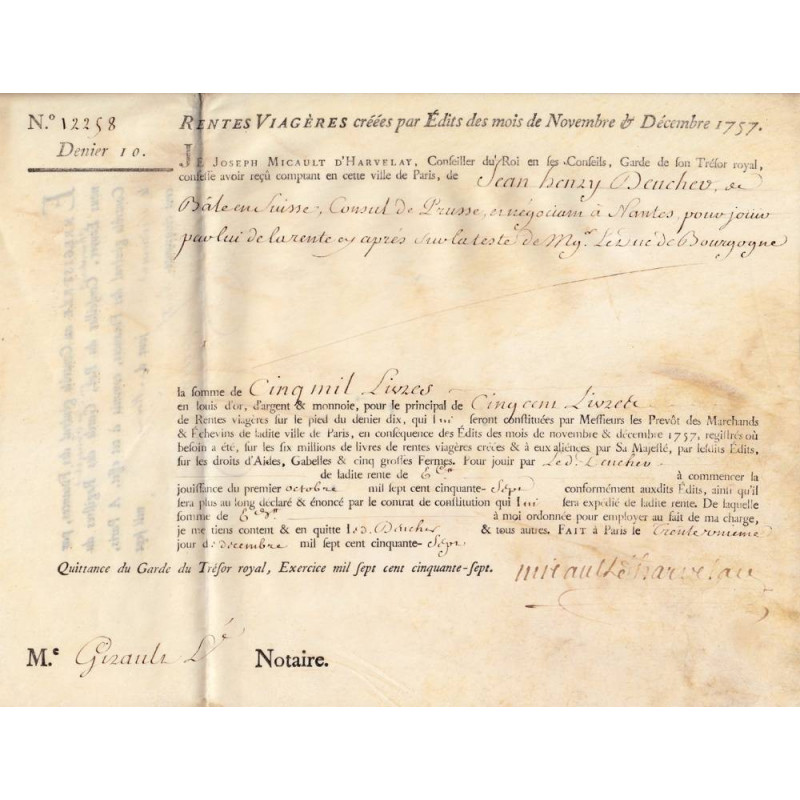 N.º 12258
Denier 10.
RENTES VIAGÈRES créées par Édits des mois de Novembre & Décembre 1757.
JE JOSEPH MICAULT D'HARVELAY, Conseiller du Roi en ses Conseils, Garde de son Trésor royal,
confesse avoir reçû comptant en cette ville de Paris, de Jean henry Deucher, de
Bâle en Suisse, Consul de Prusse, et négociant à Nantes, pour jouir
par lui de la rente cy après sur la teste de Mgr. Le Duc de Bourgogne
la somme de Cinq mil Livres
en louis d'or, d'argent & monnoie, pour le principal de Cinq cent Livres de
de Rentes viagères sur le pied du denier dix, qui lui seront constituées par Messieurs les Prevôt des Marchands
& Échevins de ladite ville de Paris, en conséquence des Édits des mois de novembre & décembre 1757, registrés où
besoin a été, sur les six millions de livres de rentes viagères créées & à eux aliénées par Sa Majesté, par lesdits Édits,
sur les droits d'Aides, Gabelles & cinq grosses Fermes. Pour jouir par Le d. Deucher
de ladite rente de à commencer la
jouissance du premier octobre mil sept cent cinquante-sept conformément auxdits Édits, ainsi qu'il
sera plus au long déclaré & énoncé par le contrat de constitution qui lui sera expédié de ladite rente. De laquelle
somme de à moi ordonnée pour employer au fait de ma charge,
je me tiens content & en quitte led. Deucher & tous autres. FAIT à Paris le trente unième
jour de decembre mil sept cent cinquante-sept
Quittance du Garde du Trésor royal, Exercice mil sept cent cinquante-sept. micault d'harvelay
M.e Girault Notaire.